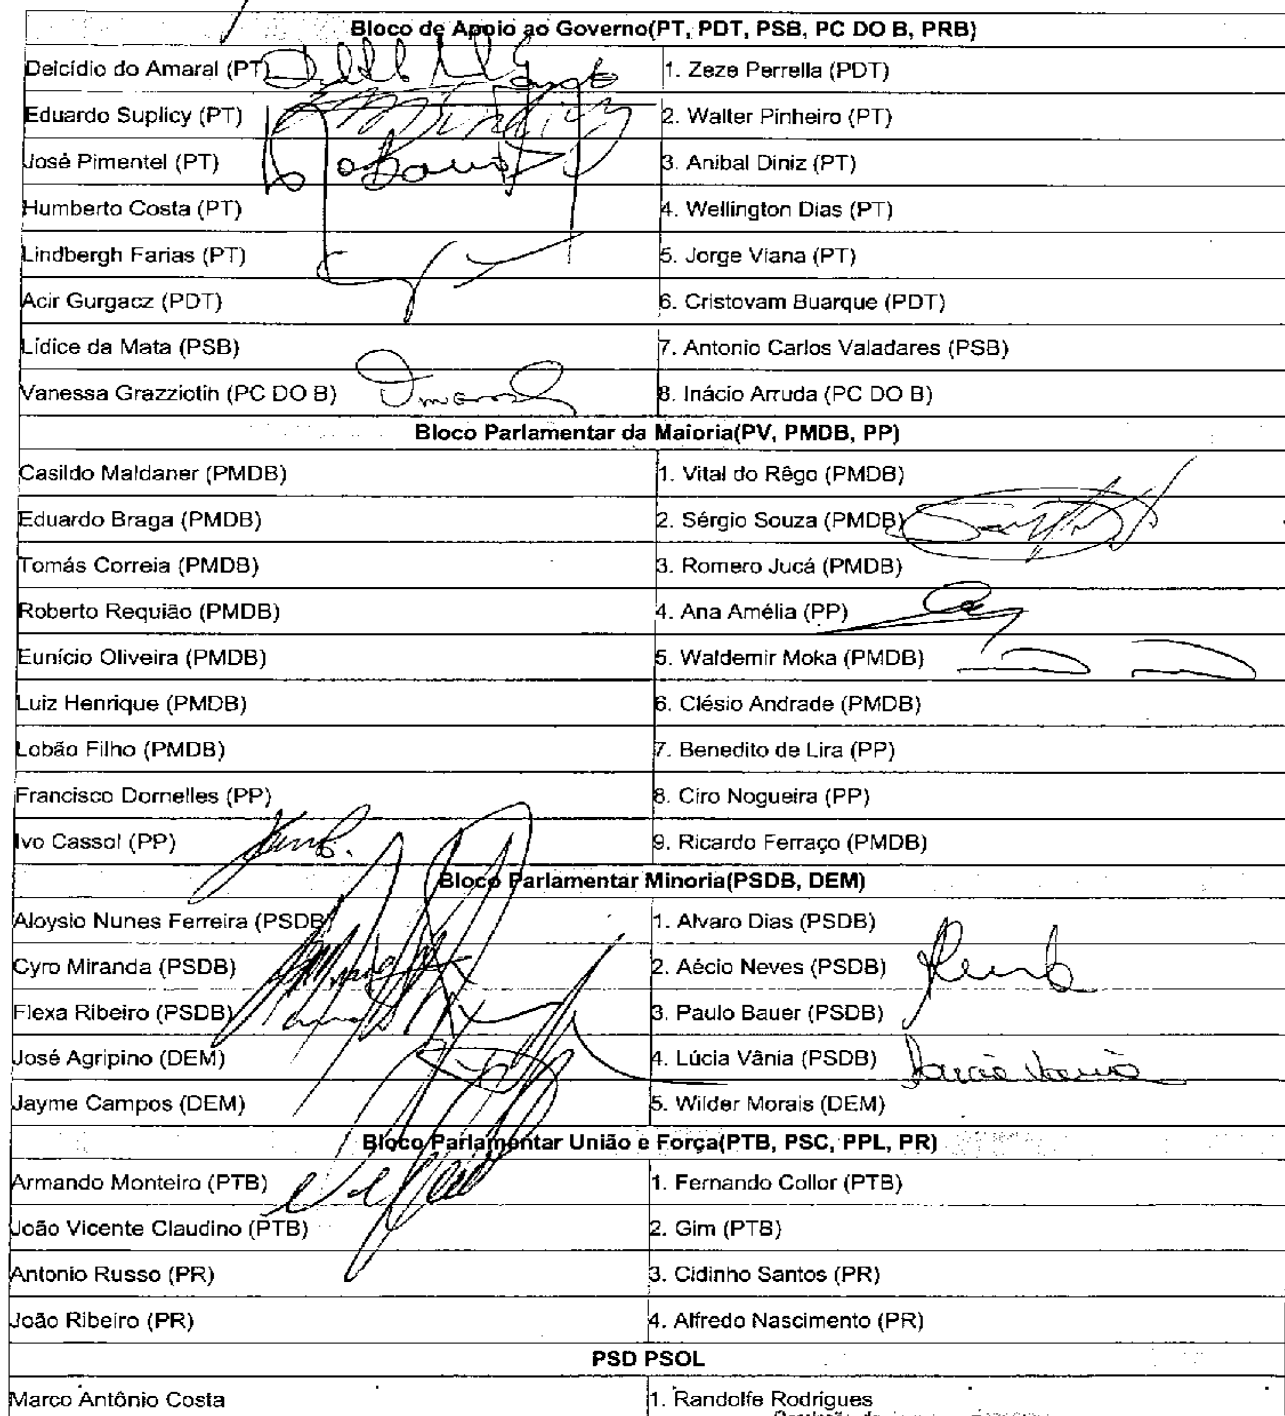 Bloco de Apoio ao Governo(PT, PDT, PSB, PC DO B, PRB)
Delcídio do Amaral (PT) 1. Zeze Perrella (PDT)
Eduardo Suplicy (PT) 2. Walter Pinheiro (PT)
José Pimentel (PT) 3. Anibal Diniz (PT)
Humberto Costa (PT) 4. Wellington Dias (PT)
Lindbergh Farias (PT) 5. Jorge Viana (PT)
Acir Gurgacz (PDT) 6. Cristovam Buarque (PDT)
Lídice da Mata (PSB) 7. Antonio Carlos Valadares (PSB)
Vanessa Grazziotin (PC DO B) 8. Inácio Arruda (PC DO B)
Bloco Parlamentar da Maioria(PV, PMDB, PP)
Casildo Maldaner (PMDB) 1. Vital do Rêgo (PMDB)
Eduardo Braga (PMDB) 2. Sérgio Souza (PMDB)
Tomás Correia (PMDB) 3. Romero Jucá (PMDB)
Roberto Requião (PMDB) 4. Ana Amélia (PP)
Eunício Oliveira (PMDB) 5. Waldemir Moka (PMDB)
Luiz Henrique (PMDB) 6. Clésio Andrade (PMDB)
Lobão Filho (PMDB) 7. Benedito de Lira (PP)
Francisco Dornelles (PP) 8. Ciro Nogueira (PP)
Ivo Cassol (PP) 9. Ricardo Ferraço (PMDB)
Bloco Parlamentar Minoria(PSDB, DEM)
Aloysio Nunes Ferreira (PSDB) 1. Alvaro Dias (PSDB)
Cyro Miranda (PSDB) 2. Aécio Neves (PSDB)
Flexa Ribeiro (PSDB) 3. Paulo Bauer (PSDB)
José Agripino (DEM) 4. Lúcia Vânia (PSDB) Lúcia Vânia
Jayme Campos (DEM) 5. Wilder Morais (DEM)
Bloco Parlamentar União e Força(PTB, PSC, PPL, PR)
Armando Monteiro (PTB) 1. Fernando Collor (PTB)
João Vicente Claudino (PTB) 2. Gim (PTB)
Antonio Russo (PR) 3. Cidinho Santos (PR)
João Ribeiro (PR) 4. Alfredo Nascimento (PR)
PSD PSOL
Marco Antônio Costa 1. Randolfe Rodrigues